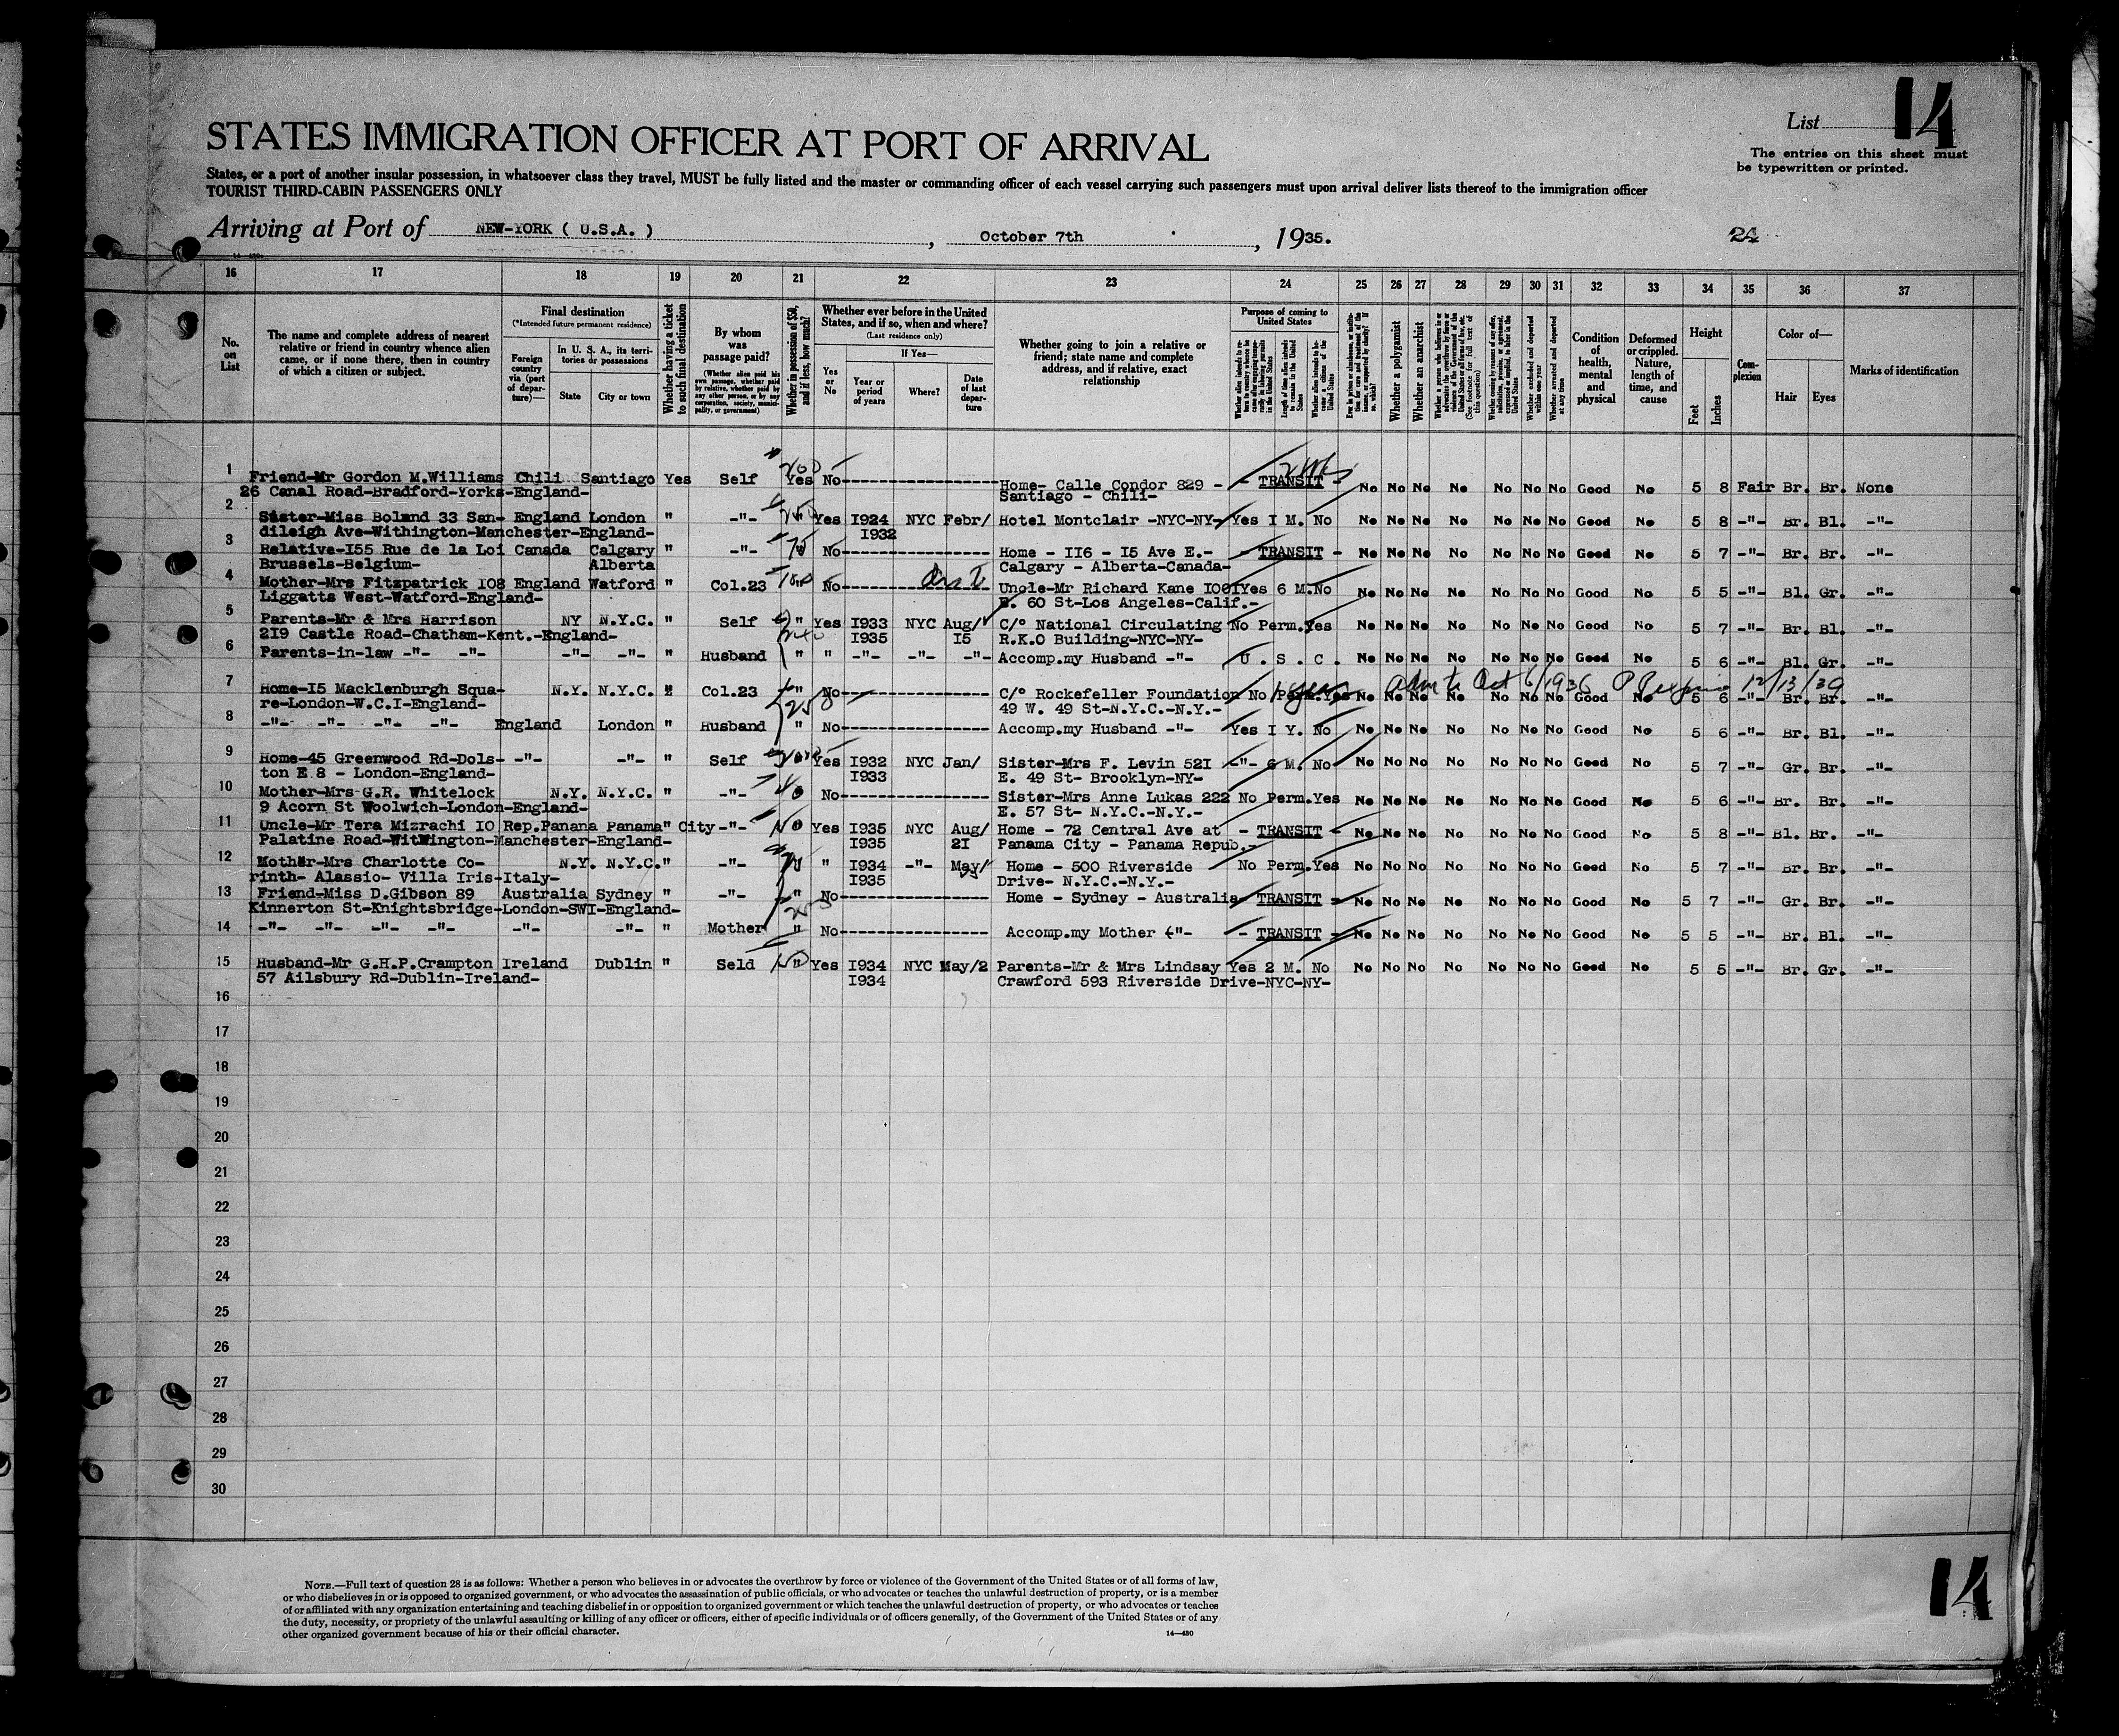 List 14
STATES IMMIGRATION OFFICER AT PORT OF ARRIVAL
The entries on this sheet must
be typewritten or printed.
States, or a port of another insular possession, in whatsoever class they travel, MUST be fully listed and the master or commanding officer of each vessel carrying such passengers must upon arrival deliver lists thereof to the immigration officer
TOURIST THIRD-CABIN PASSENGERS ONLY
Arriving at Port of NEW-YORK ( U.S.A. ) , October 7th , 1935.
24
16 17 18 19 20 21 22 23 24 25 26 27 28 29 30 31 32 33 34 35 36 37
No. on List
The name and complete address of nearest relative or friend in country whence alien came, or if none there, then in country of which a citizen or subject.
Final destination
(*Intended future permanent residence)
Foreign country via (port of departure)—
In U. S. A., its territories or possessions
State City or town
Whether having a ticket to such final destination
By whom was passage paid?
(Whether alien paid his own passage, whether paid by relative, whether paid by any other person, or by any corporation, society, municipality, or government)
Whether in possession of $50, and if less, how much?
Whether ever before in the United States, and if so, when and where?
(Last residence only)
Yes or No
If Yes—
Year or period of years Where? Date of last departure
Whether going to join a relative or friend; state name and complete address, and if relative, exact relationship
Purpose of coming to United States
Length of time alien intends to remain in the United States
Whether a polygamist
Whether an anarchist
Whether excluded and deported within one year
Whether arrested and deported at any time
Condition of health, mental and physical
Deformed or crippled. Nature, length of time, and cause
Height
Feet Inches
Complexion
Color of—
Hair Eyes
Marks of identification
1 Friend-Mr Gordon M.Williams Chili Santiago Yes Self 200 Yes No Home- Calle Condor 829 - - TRANSIT - No No No No No No No Good No 5 8 Fair Br. Br. None
26 Canal Road-Bradford-Yorks-England- Santiago - Chili-
2 Sister-Miss Boland 33 San- England London " -"- " Yes I924 NYC Febr/ Hotel Montclair -NYC-NY- Yes I M. No No No No No No No No Good No 5 8 -"- Br. Bl. -"-
dileigh Ave-Withington-Manchester-England- I932
3 Relative-I55 Rue de la Loi Canada Calgary " -"- 75 No Home - II6 - I5 Ave E.- - TRANSIT - No No No No No No No Good No 5 7 -"- Br. Br. -"-
Brussels-Belgium- Alberta Calgary - Alberta-Canada-
4 Mother-Mrs Fitzpatrick I08 England Watford " Col.23 " No Uncle-Mr Richard Kane I00I Yes 6 M. No No No No No No No No Good No 5 5 -"- Bl. Gr. -"-
Liggatts West-Watford-England- E. 60 St-Los Angeles-Calif.-
5 Parents-Mr & Mrs Harrison NY N.Y.C. " Self " Yes I933 NYC Aug/ C/° National Circulating No Perm.Yes No No No No No No No Good No 5 7 -"- Br. Bl. -"-
2I9 Castle Road-Chatham-Kent.-England- I935 I5 R.K.O Building-NYC-NY-
6 Parents-in-law -"- -"- -"- -"- " Husband " " -"- -"- -"- Accomp.my Husband -"- U . S . C . No No No No No No No Good No 5 6 -"- Bl. Gr. -"-
7 Home-I5 Macklenburgh Squa- N.Y. N.Y.C. " Col.23 " No C/° Rockefeller Foundation No Perm.Yes 1 year No No No No No No No Good No 5 6 -"- Br. Br. -"-
Oct 6/1936 12/13/39
re-London-W.C.I-England- 49 W. 49 St-N.Y.C.-N.Y.-
8 -"- -"- -"- -"- England London " Husband 250 " No Accomp.my Husband -"- Yes I Y. No No No No No No No No Good No 5 6 -"- Br. Bl. -"-
9 Home-45 Greenwood Rd-Dols- -"- -"- " Self Yes I932 NYC Jan/ Sister-Mrs F. Levin 52I -"- 6 M. No No No No No No No No Good No 5 7 -"- Gr. Br. -"-
ton E.8 - London-England- I933 E. 49 St- Brooklyn-NY-
10 Mother-Mrs G.R. Whitelock N.Y. N.Y.C. " -"- 40 No Sister-Mrs Anne Lukas 222 No Perm.Yes No No No No No No No Good No 5 6 -"- Br. Br. -"-
9 Acorn St Woolwich-London-England- E. 57 St- N.Y.C.-N.Y.-
11 Uncle-Mr Tera Mizrachi IO Rep.Panana Panama" City -"- Yes I935 NYC Aug/ Home - 72 Central Ave at - TRANSIT - No No No No No No No Good No 5 8 -"- Bl. Br. -"-
Palatine Road-Withington-Manchester-England- I935 2I Panama City - Panama Repub.-
12 Mother-Mrs Charlotte Co- N.Y. N.Y.C." -"- " I934 -"- May/ Home - 500 Riverside No Perm.Yes No No No No No No No Good No 5 7 -"- Br. Br. -"-
rinth- Alassio- Villa Iris-Italy- I935 Drive- N.Y.C.-N.Y.-
13 Friend-Miss D.Gibson 89 Australia Sydney " -"- " No Home - Sydney - Australia- TRANSIT - No No No No No No No Good No 5 7 -"- Gr. Br. -"-
Kinnerton St-Knightsbridge-London-SWI-England-
14 -"- -"- -"- -"- -"- -"- " Mother " No Accomp.my Mother -"- - TRANSIT - No No No No No No No Good No 5 5 -"- Br. Bl. -"-
15 Husband-Mr G.H.P.Crampton Ireland Dublin " Seld " Yes I934 NYC May/2 Parents-Mr & Mrs Lindsay Yes 2 M. No No No No No No No No Good No 5 5 -"- Br. Gr. -"-
57 Ailsbury Rd-Dublin-Ireland- I934 Crawford 593 Riverside Drive-NYC-NY-
16
17
18
19
20
21
22
23
24
25
26
27
28
29
30
NOTE.—Full text of question 28 is as follows: Whether a person who believes in or advocates the overthrow by force or violence of the Government of the United States or of all forms of law,
or who disbelieves in or is opposed to organized government, or who advocates the assassination of public officials, or who advocates or teaches the unlawful destruction of property, or is a member
of or affiliated with any organization entertaining and teaching disbelief in or opposition to organized government or which teaches the unlawful destruction of property, or who advocates or teaches
the duty, necessity, or propriety of the unlawful assaulting or killing of any officer or officers, either of specific individuals or of officers generally, of the Government of the United States or of any
other organized government because of his or their official character.
14—430
14